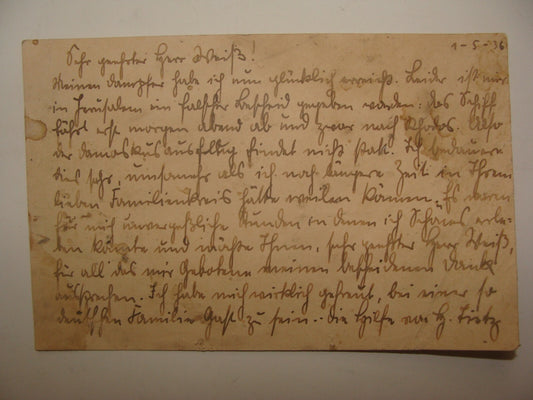 1-5-36
Sehr geehrter Herr Weiß!
Meinen Dampfer habe ich nun glücklich erreicht. Leider ist mir
in Jerusalem ein falscher Bescheid gegeben worden: das Schiff
fährt erst morgen abend ab und zwar nach Rhodos. Also
der Damaskusausflug findet nicht statt. Ich bedauere
dies sehr, umsomehr als ich noch längere Zeit in Ihrem
lieben Familienkreis hätte weilen können. Es waren
für mich unvergeßliche Stunden in denen ich Schönes erle-
ben konnte und möchte Ihnen, sehr geehrter Herr Weiß,
für all das mir Gebotene meinen bescheidenen Dank
aussprechen. Ich habe mich wirklich gefreut, bei einer so
deutschen Familie Gast zu sein. Die Hilfe von H.